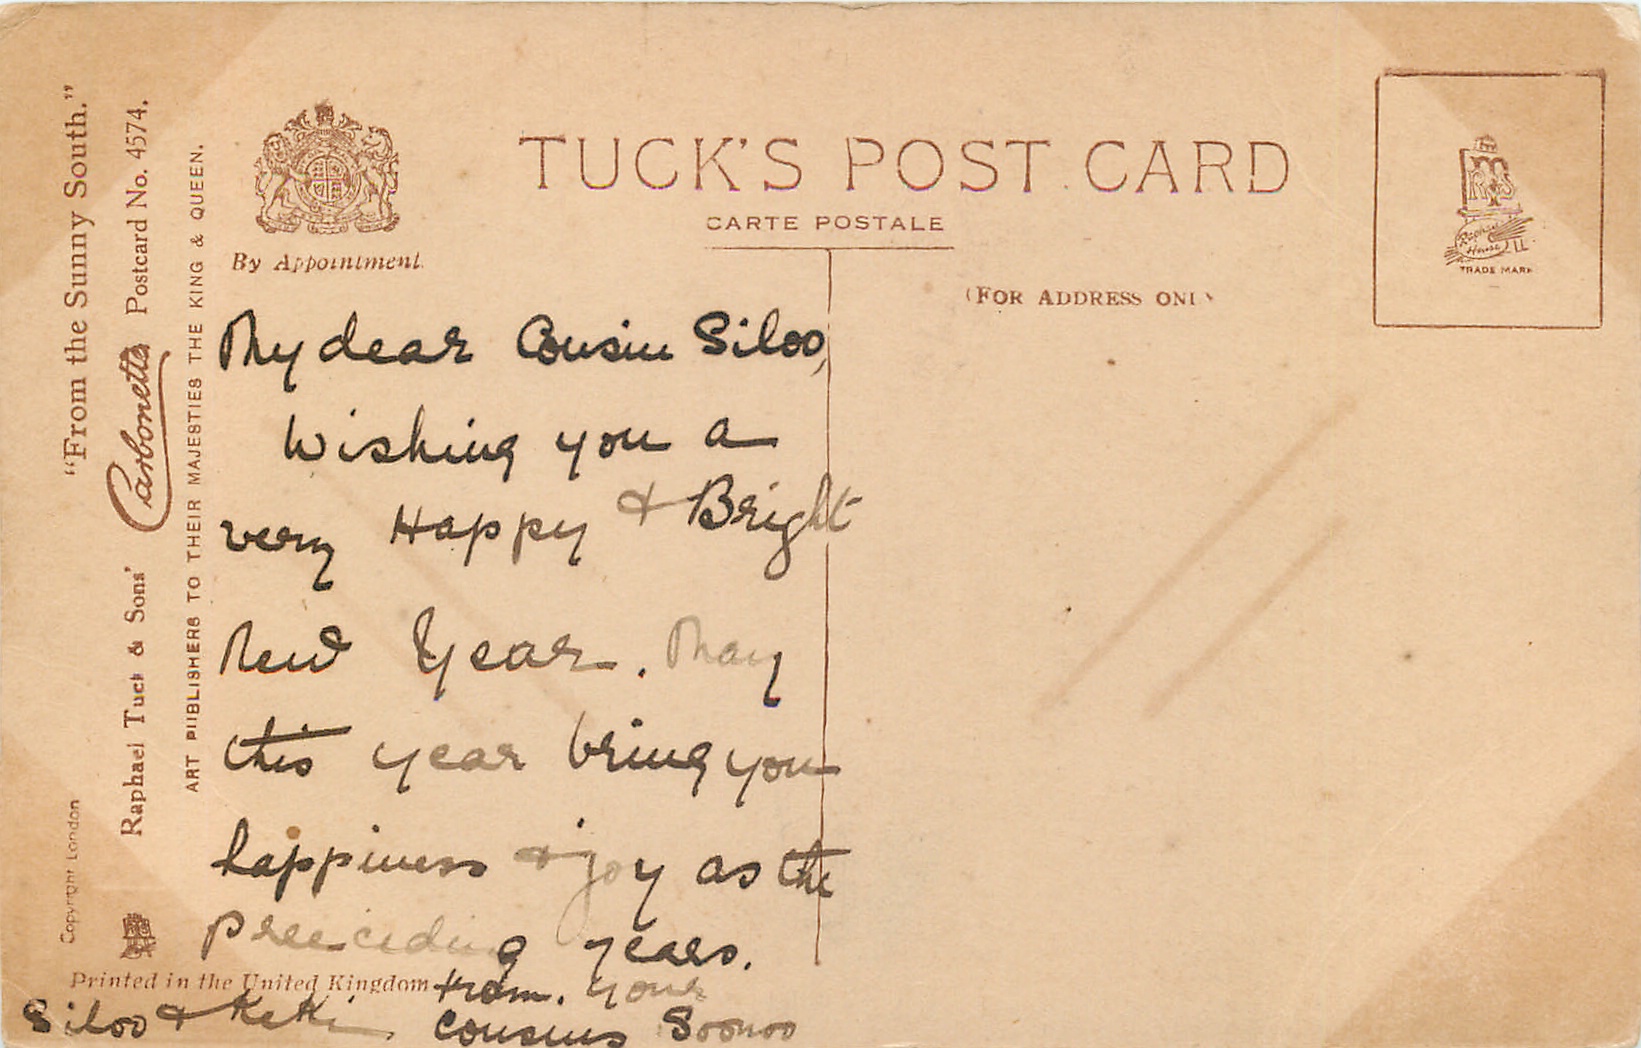 TUCK'S POST CARD
CARTE POSTALE
(FOR ADDRESS ONLY
By Appointment.
TRADE MARK
Raphael House
"From the Sunny South."
Raphael Tuck & Sons' Carbonette Postcard No. 4574.
ART PUBLISHERS TO THEIR MAJESTIES THE KING & QUEEN.
Copyright London
My dear Cousin Siloo,
Wishing you a
very Happy & Bright
New Year. May
this year bring you
happiness & joy as the
preeceding years.
Printed in the United Kingdom
from. your
cousins Soonoo
Siloo & Ketti